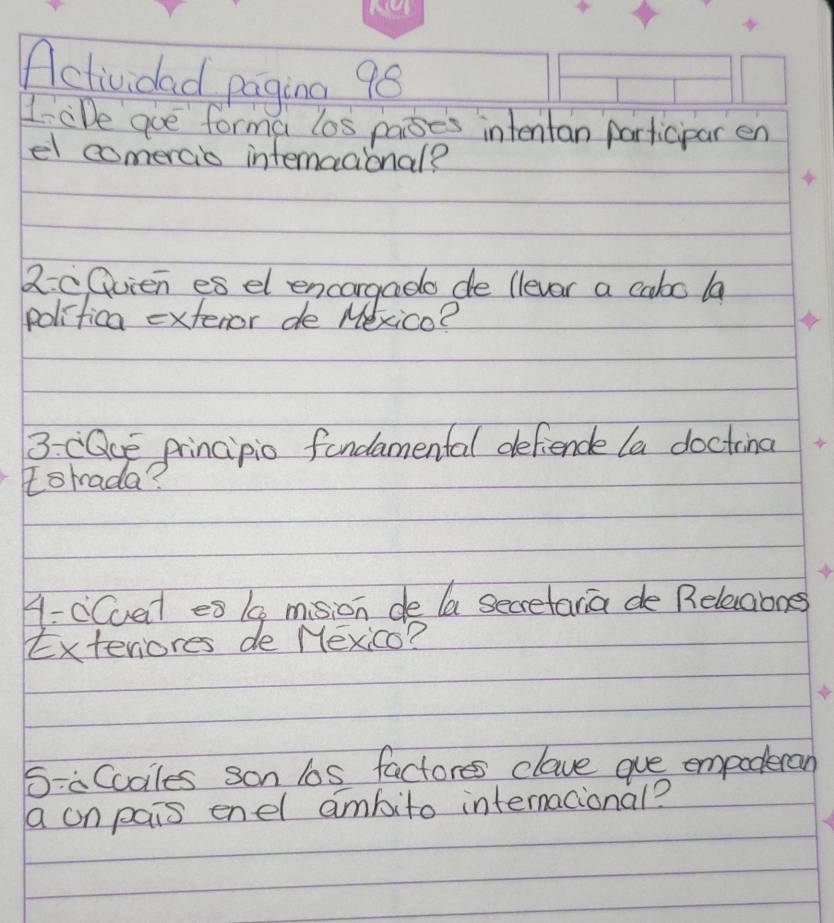 Kiut
Actividad página 98
1-¿De qué forma los países intentan participar en
el comercio internacional?
2-¿Quién es el encargado de llevar a cabo la
política exterior de México?
3-¿Qué principio fundamental defiende la doctrina
Estrada?
4-¿Cuál es la misión de la secretaría de Relaciones
Exteriores de México?
5-¿Cuáles son los factores clave que empoderan
a un país en el ámbito internacional?